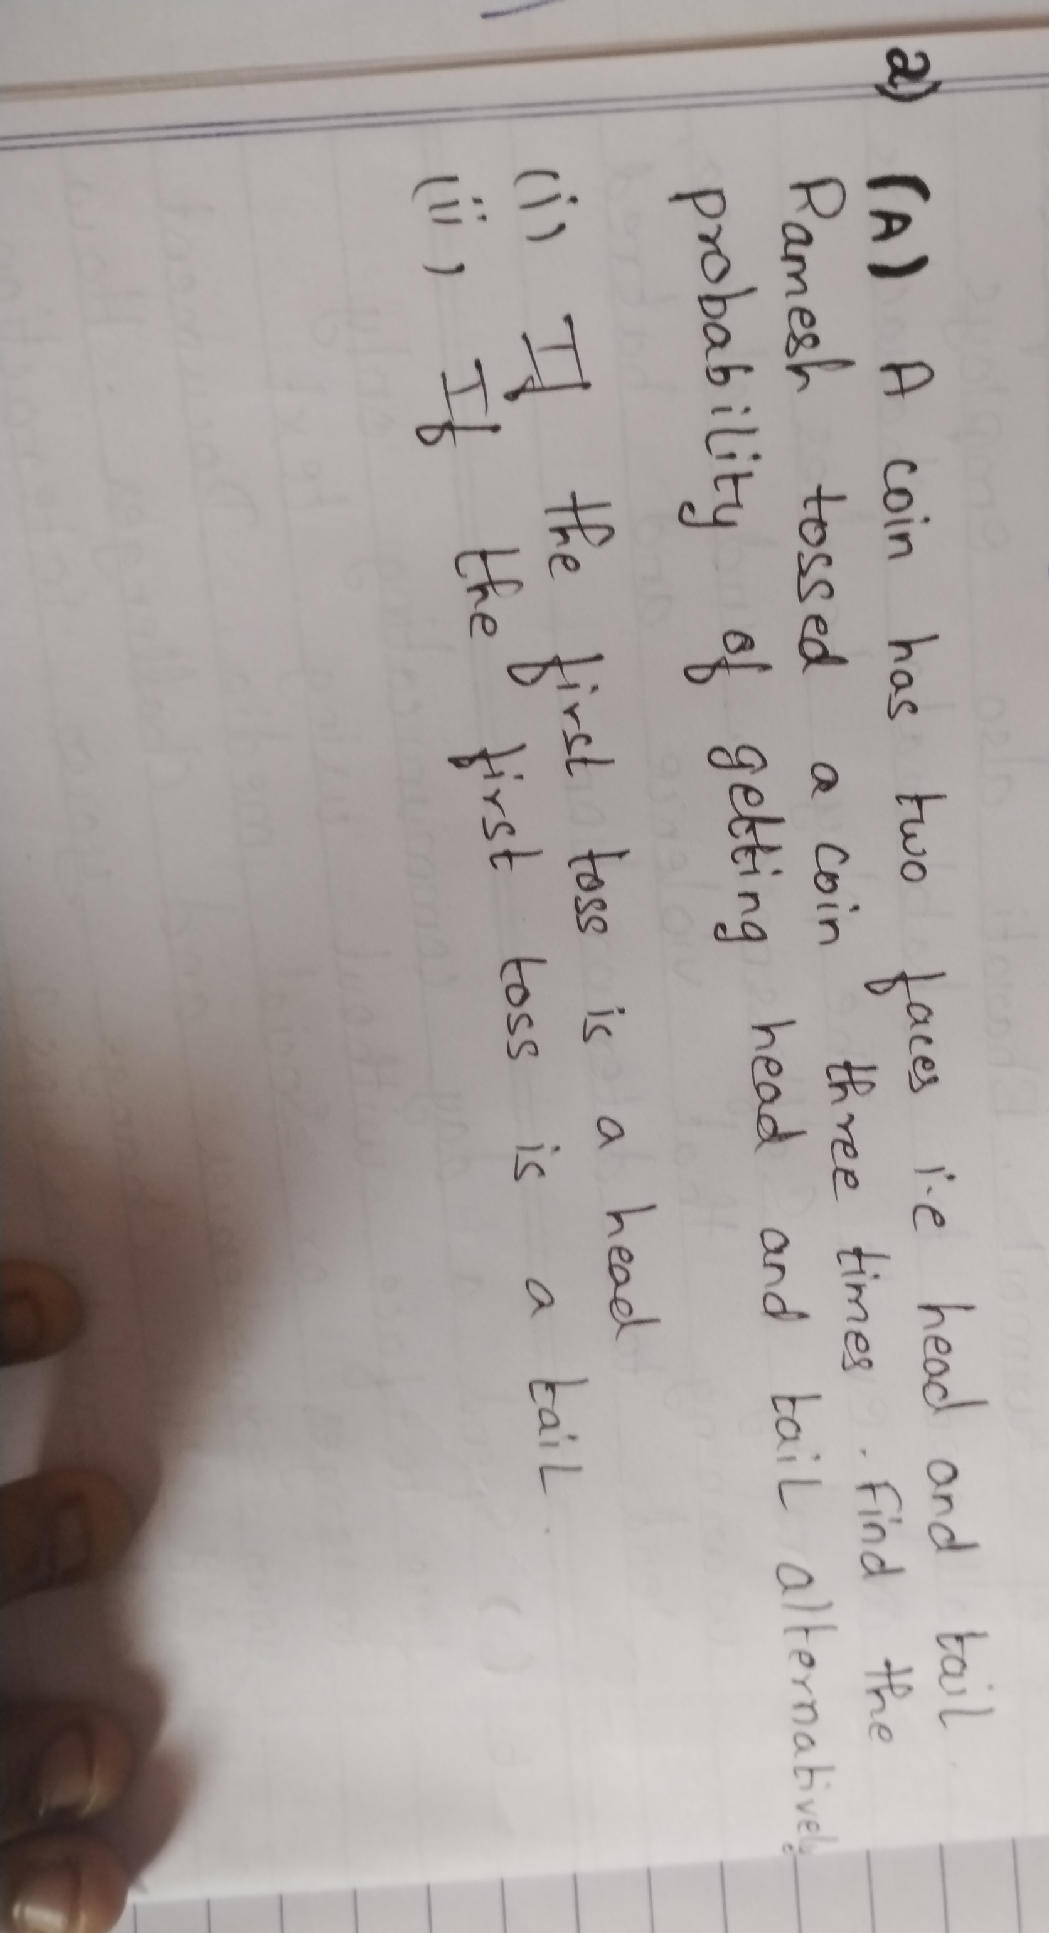 2) (A) A coin has two faces i.e head and tail.
Ramesh tossed a coin three times. Find the
probability of getting head and tail alternatively
(i) If the first toss is a head
(ii) If the first toss is a tail.